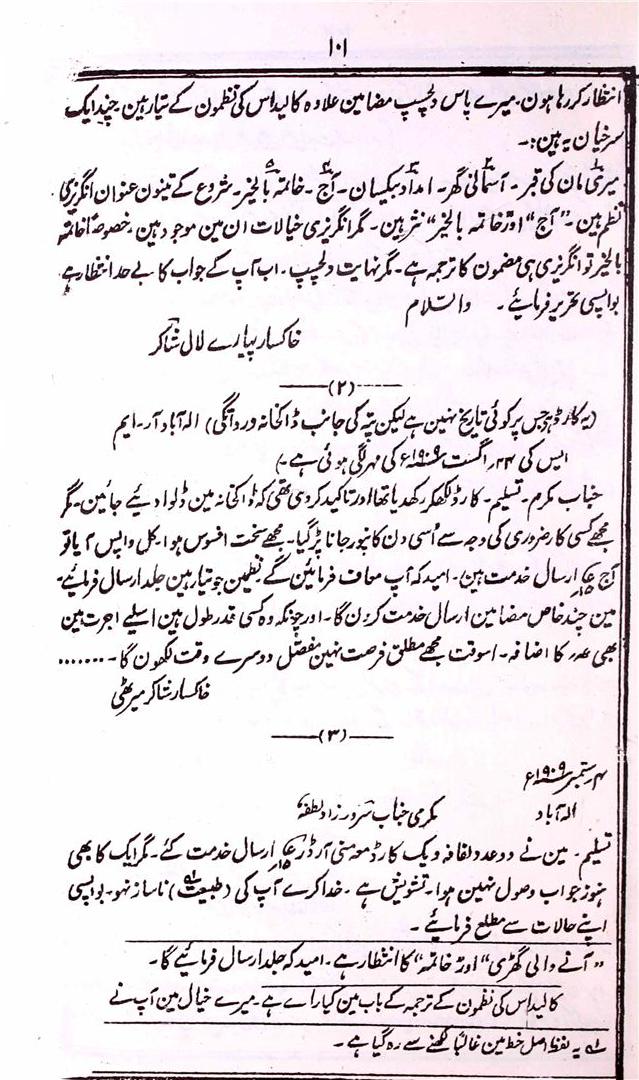 ۱۰۱
انتظار کر رہا ہون۔ میرے پاس دلچسپ مضامین علاوہ کالیداس کی نظمون کے تیار ہین۔ چند ایک
سرخیان یہ ہین:۔
میری مان کی قبر۔ آسمانی گھر۔ امداد بیکسان۔ آج۔ خاتمہ بالخیر۔ شروع کے تینون عنوان انگریزی
نظم ہین۔ "آج" اور "خاتمہ بالخیر" نثر ہین۔ مگر انگریزی خیالات ان مین موجود ہین۔ خصوصاً خاتمہ
بالخیر تو انگریزی ہی مضمون کا ترجمہ ہے۔ مگر نہایت دلچسپ۔ اب آپ کے جواب کا بے حد انتظار ہے
بواپسی تحریر فرمایئے۔ والسلام
خاکسار پیارے لال شاکر
(۲)
(یہ کارڈ ہے جس پر کوئی تاریخ نہین ہے لیکن پتہ کی جانب ڈاکخانہ وردانگی) الہ آباد آر۔ ایم
ایس کی ۲۴ اگست ۱۹۰۹ء کی مہر لگی ہوئی ہے۔)
جناب مکرم۔ تسلیم۔ کارڈ لکھکر رکھدیا تھا اور تاکید کر دی تھی کہ ڈاکخانہ مین ڈلوا دیئے جائین۔ مگر
مجھے کسی کار ضروری کی وجہ سے اُسی دن کانپور جانا پڑ گیا۔ مجھے سخت افسوس ہوا۔ کل واپس آیا تو
آج ارسال خدمت ہین۔ امید کہ آپ معاف فرمائین گے نظمین جو تیار ہین جلد ارسال فرمایئے۔
مین چند خاص مضامین ارسال خدمت کرون گا۔ اور چونکہ وہ کسی قدر طول ہین اسلیے اجرت مین
بھی کا اضافہ۔ اسوقت مجھے مطلق فرصت نہین مفصل دوسرے وقت لکھون گا۔.......
خاکسار شاکر میرٹھی
(۳)
۴ ستمبر ۱۹۰۹ء
الہ آباد مکرمی جناب سرور زاد لطفہ
تسلیم۔ مین نے دو عدد لفافہ و یک کارڈ و منی آرڈر ارسال خدمت کئے۔ مگر ایک کا بھی
ہنوز جواب وصول نہین ہوا۔ تشویش ہے۔ خدا کرے آپ کی (طبیعت) ناساز نہو۔ بواپسی
اپنے حالات سے مطلع فرمایئے۔
"آنے والی گھڑی" اور "خاتمہ" کا انتظار ہے۔ امید کہ جلد ارسال فرمایئے گا۔
کالیداس کی نظمون کے ترجمہ کے باب مین کیا رائے ہے۔ میرے خیال مین آپ نے
یہ لفظ اصل خط مین غالباً لکھنے سے رہ گیا ہے۔